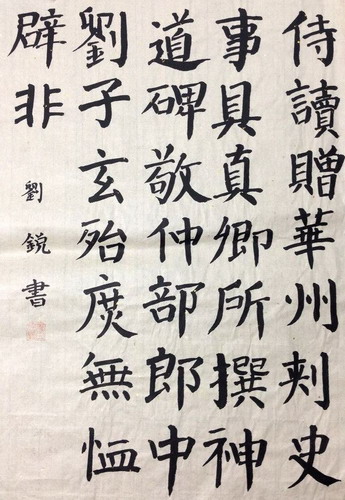 侍讀贈華州刺史
事具真卿所撰神
道碑敬仲部郎中
劉子玄殆庶無恤
辟非
劉銳書